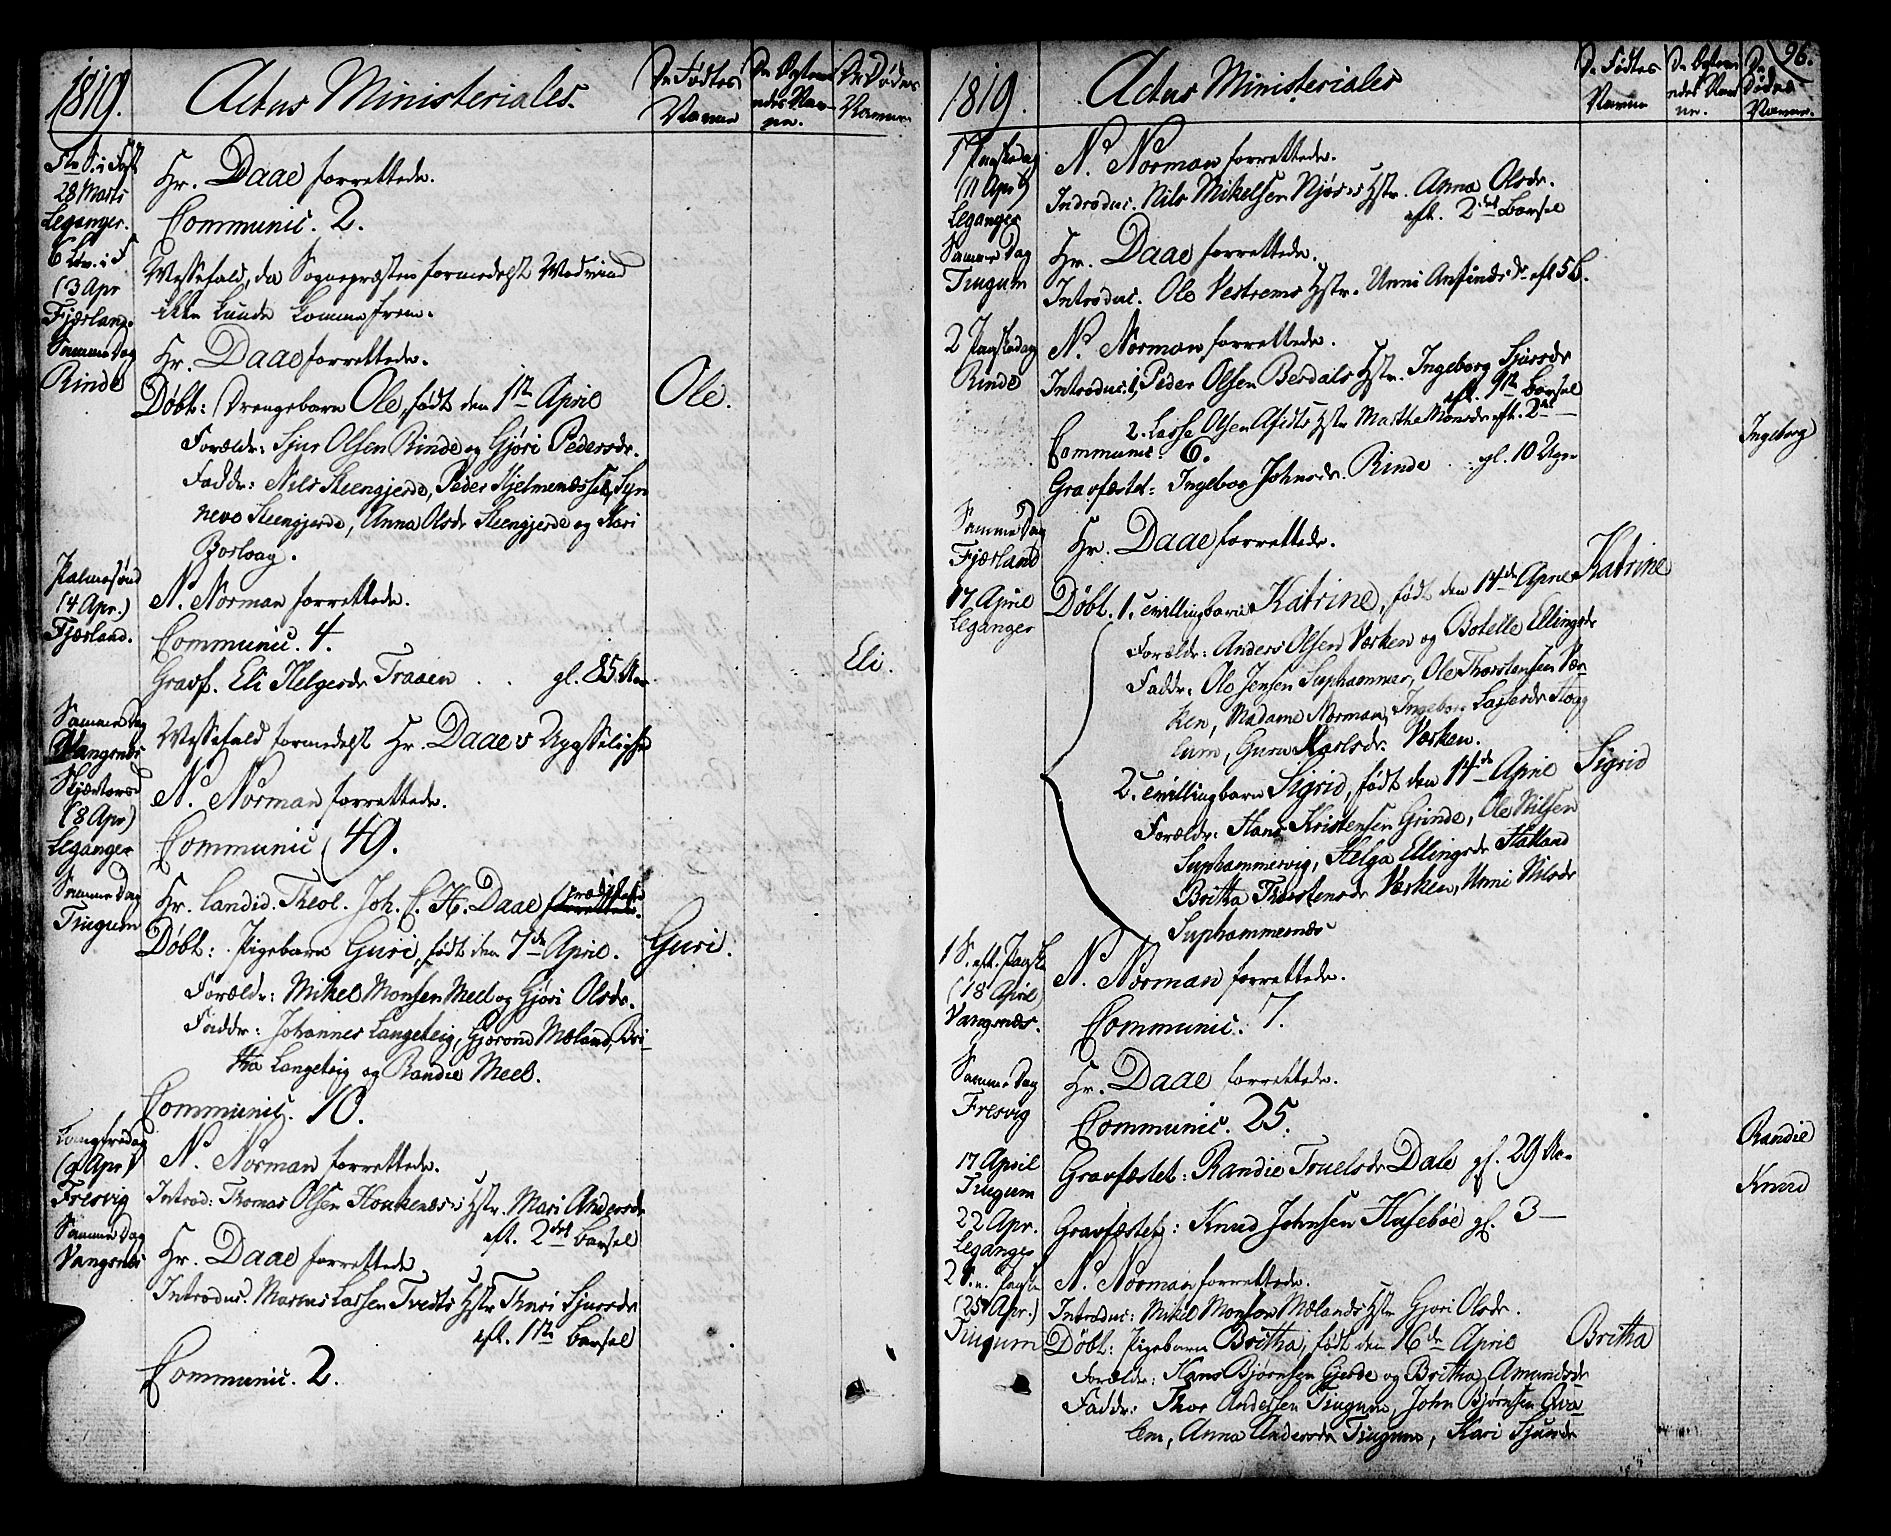 1819.
Actus Ministeriales.
De Fødtes Navne
De Døbtes Navne
5te S. i Fast
28 Marts
Leganger.
Hr. Daae forrettede.
Communic. 2.
6 Løv. i F
(3 Apr
Fjærland.
Messefald, da Sognepræsten formedelst Modvind
ikke kunde komme frem.
Samme Dag
Rinde
Hr. Daae forrettede.
Døbt: Drengebarn Ole, født den 1ste April
Ole.
Forældr: Sjur Olsen Rinde og Gjøri Pedersdr.
Faddr: Nils Steengjerde, Peder Hjelmenæsset, Syn
neve Steengjerde, Anna Olsdr Steengjerde og Kari
Borlaug.
Palmesønd
(4 Apr.)
Fjærland.
N. Norman forrettede.
Communic. 4.
Gravf. Eli Helgesdr Traaen . . gl. 85 Aar
Eli.
Samme Dag
Vangsnes
Messefald formedelst Hr. Daaes Upasselighed
Skjærtorsd
(8 Apr)
Leganger
N. Norman forrettede.
Communic 49.
Samme Dag
Tiugum
Hr. Candid. Theol. Joh. C. H. Daae prædikede
Døbt: Pigebarn Guri, født den 7de April.
Guri.
Forældr: Mikel Monsen Meel og Gjøri Olsdr.
Faddr: Johannes Langeteig, Gjørond Mæland, Bri-
tha Langeteig og Randie Meel.
Communic. 10.
Langfredag
(9 Apr)
Fresvig
N. Norman forrettede.
Introd: Thomas Olsen Houkenæs's Hstr. Mari Andersdr
eft. 2det Barsel
Samme Dag
Vangsnes
Hr. Daae forrettede
Introduc. Marcus Lassen Tvedts Hstr Thuri Sjursdr
eft. 1ste Barsel
Communic. 2.
1819.
Actus Ministeriales
De Fødtes Navne
De Døde Navne.
96.
1 Paaskedag
(11 Apr)
Leganger
N. Norman forrettede.
Introduc. Nils Mikelsen Njøs's Hstr. Anna Olsdr.
eft. 2det Barsel
Samme Dag
Tiugum
Hr. Daae forrettede.
Introduc. Ole Vestrems Hstr. Unni Anfindsdr eft 5 B.
2 Paaskedag
Rinde
N. Norman forrettede.
Introduc: 1, Peder Olsen Berdals Hstr. Ingeborg Sjursdr
eft. 9de Barsel
2. Lasse Olsen Afedts Hstr Marthe Monsdr eft. 2det —
Communic 6.
Gravfæstet: Ingebor Johnsdr. Rinde . . gl. 10 Uger
Ingeborg
Samme Dag
Fjærland
Hr. Daae forrettede.
17 April
Leganger
Døbt. 1. Tvillingbarn Katrine, født den 14de April
Katrine
Forældr: Anders Olsen Værken og Botelle Ellingsdr
Faddr: Ole Jensen Suphammer, Ole Thorstensen Vær
ken, Madame Norman, Ingebor Lassesdr Houg
lum, Guru Karlsdr: Værken.
2. Tvillingbarn Sigrid, født den 14de April
Sigrid
Forældr: Hans Kristensen Grinde, Ole Nilsen
Suphammervig, Helga Ellingsdr Hatland
Britha Thorstensdr Værken, Unni Nilsdr
Suphammernæs
1 S. eft. Paaske
(18 April)
Vangsnæs.
N. Norman forrettede.
Communic. 7.
Samme Dag
Fresvig
Hr. Daae forrettede.
Communic. 25.
17 April
Tiugum
Gravfæstet: Randie Truelsdr Dale gl. 29 Aar
Randie
22 Apr.
Leganger
Gravfæstet: Knud Johnsen Husebøe gl. 3 —
Knud
(25 Apr.)
Tiugum
N. Norman forrettede.
Introduc: Mikel Monsen Mælands Hstr Gjøri Olsdr.
Døbt: Pigebarn Britha, født den 16de April
Britha
Forældr: Hans Bjørnsen Gjerde og Britha Amundsdr
Faddr: Thor Andersen Tiugum, John Bjørnsen Qva
lem, Anna Andersdr Tiugum, Kari Sjursdr